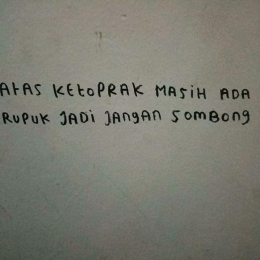 ATAS KEtoPRAK MASiH ADA
RUPUK JADi JANGAN SOMBONG